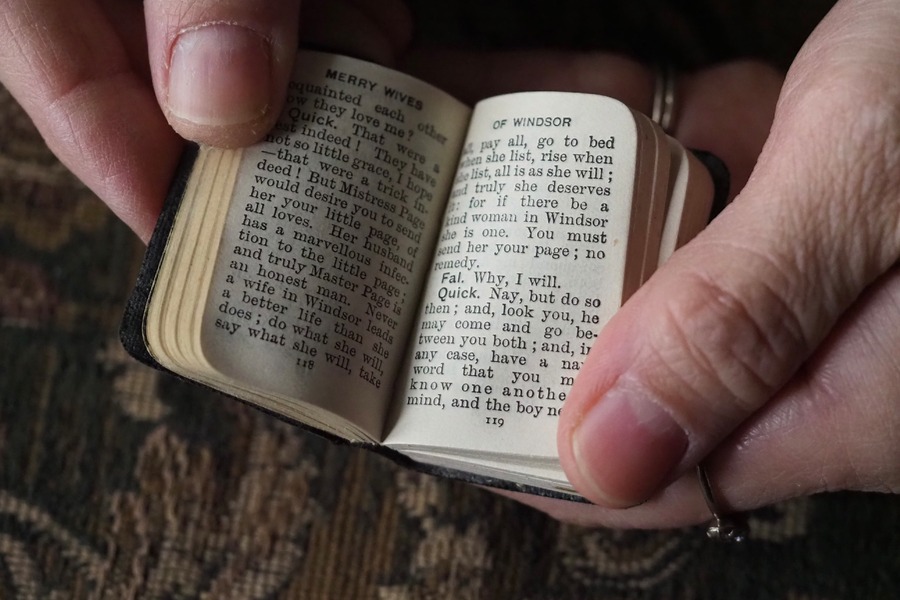 MERRY WIVES
equainted each other
ow they love me?
Quick. That were a
est indeed! They have
not so little grace, I hope
—that were a trick in-
deed! But Mistress Page
would desire you to send
her your little page, of
all loves. Her husband
has a marvellous infec-
tion to the little page;
and truly Master Page is
an honest man. Never
a wife in Windsor leads
a better life than she
does; do what she will,
say what she will, take
118
OF WINDSOR
all, pay all, go to bed
when she list, rise when
she list, all is as she will;
and truly she deserves
it: for if there be a
kind woman in Windsor
she is one. You must
send her your page; no
remedy.
Fal. Why, I will.
Quick. Nay, but do so
then; and, look you, he
may come and go be-
tween you both; and, in
any case, have a
word that you
know one
mind, and the boy
119